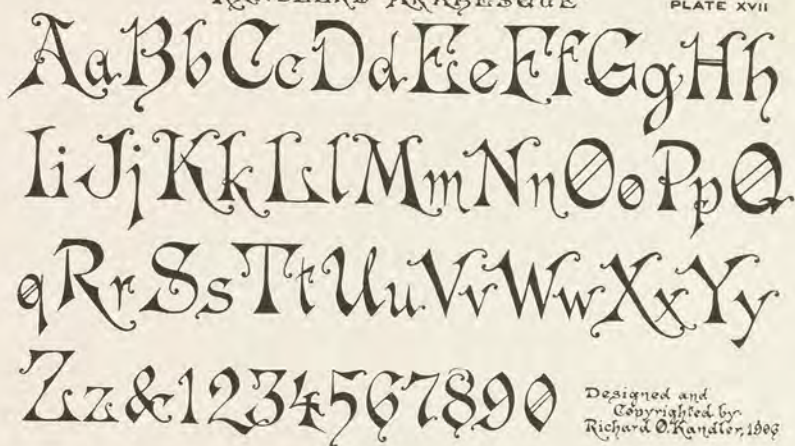 KANDLER'S ARABESQUE
PLATE XVII
AaBbCcDdEeFfGgHh
IiJjKkLlMmNnOoPpQ
qRrSsTtUuVvWwXxYy
Zz&1234567890
Designed and
Copyrighted by
Richard O. Kandler, 1903